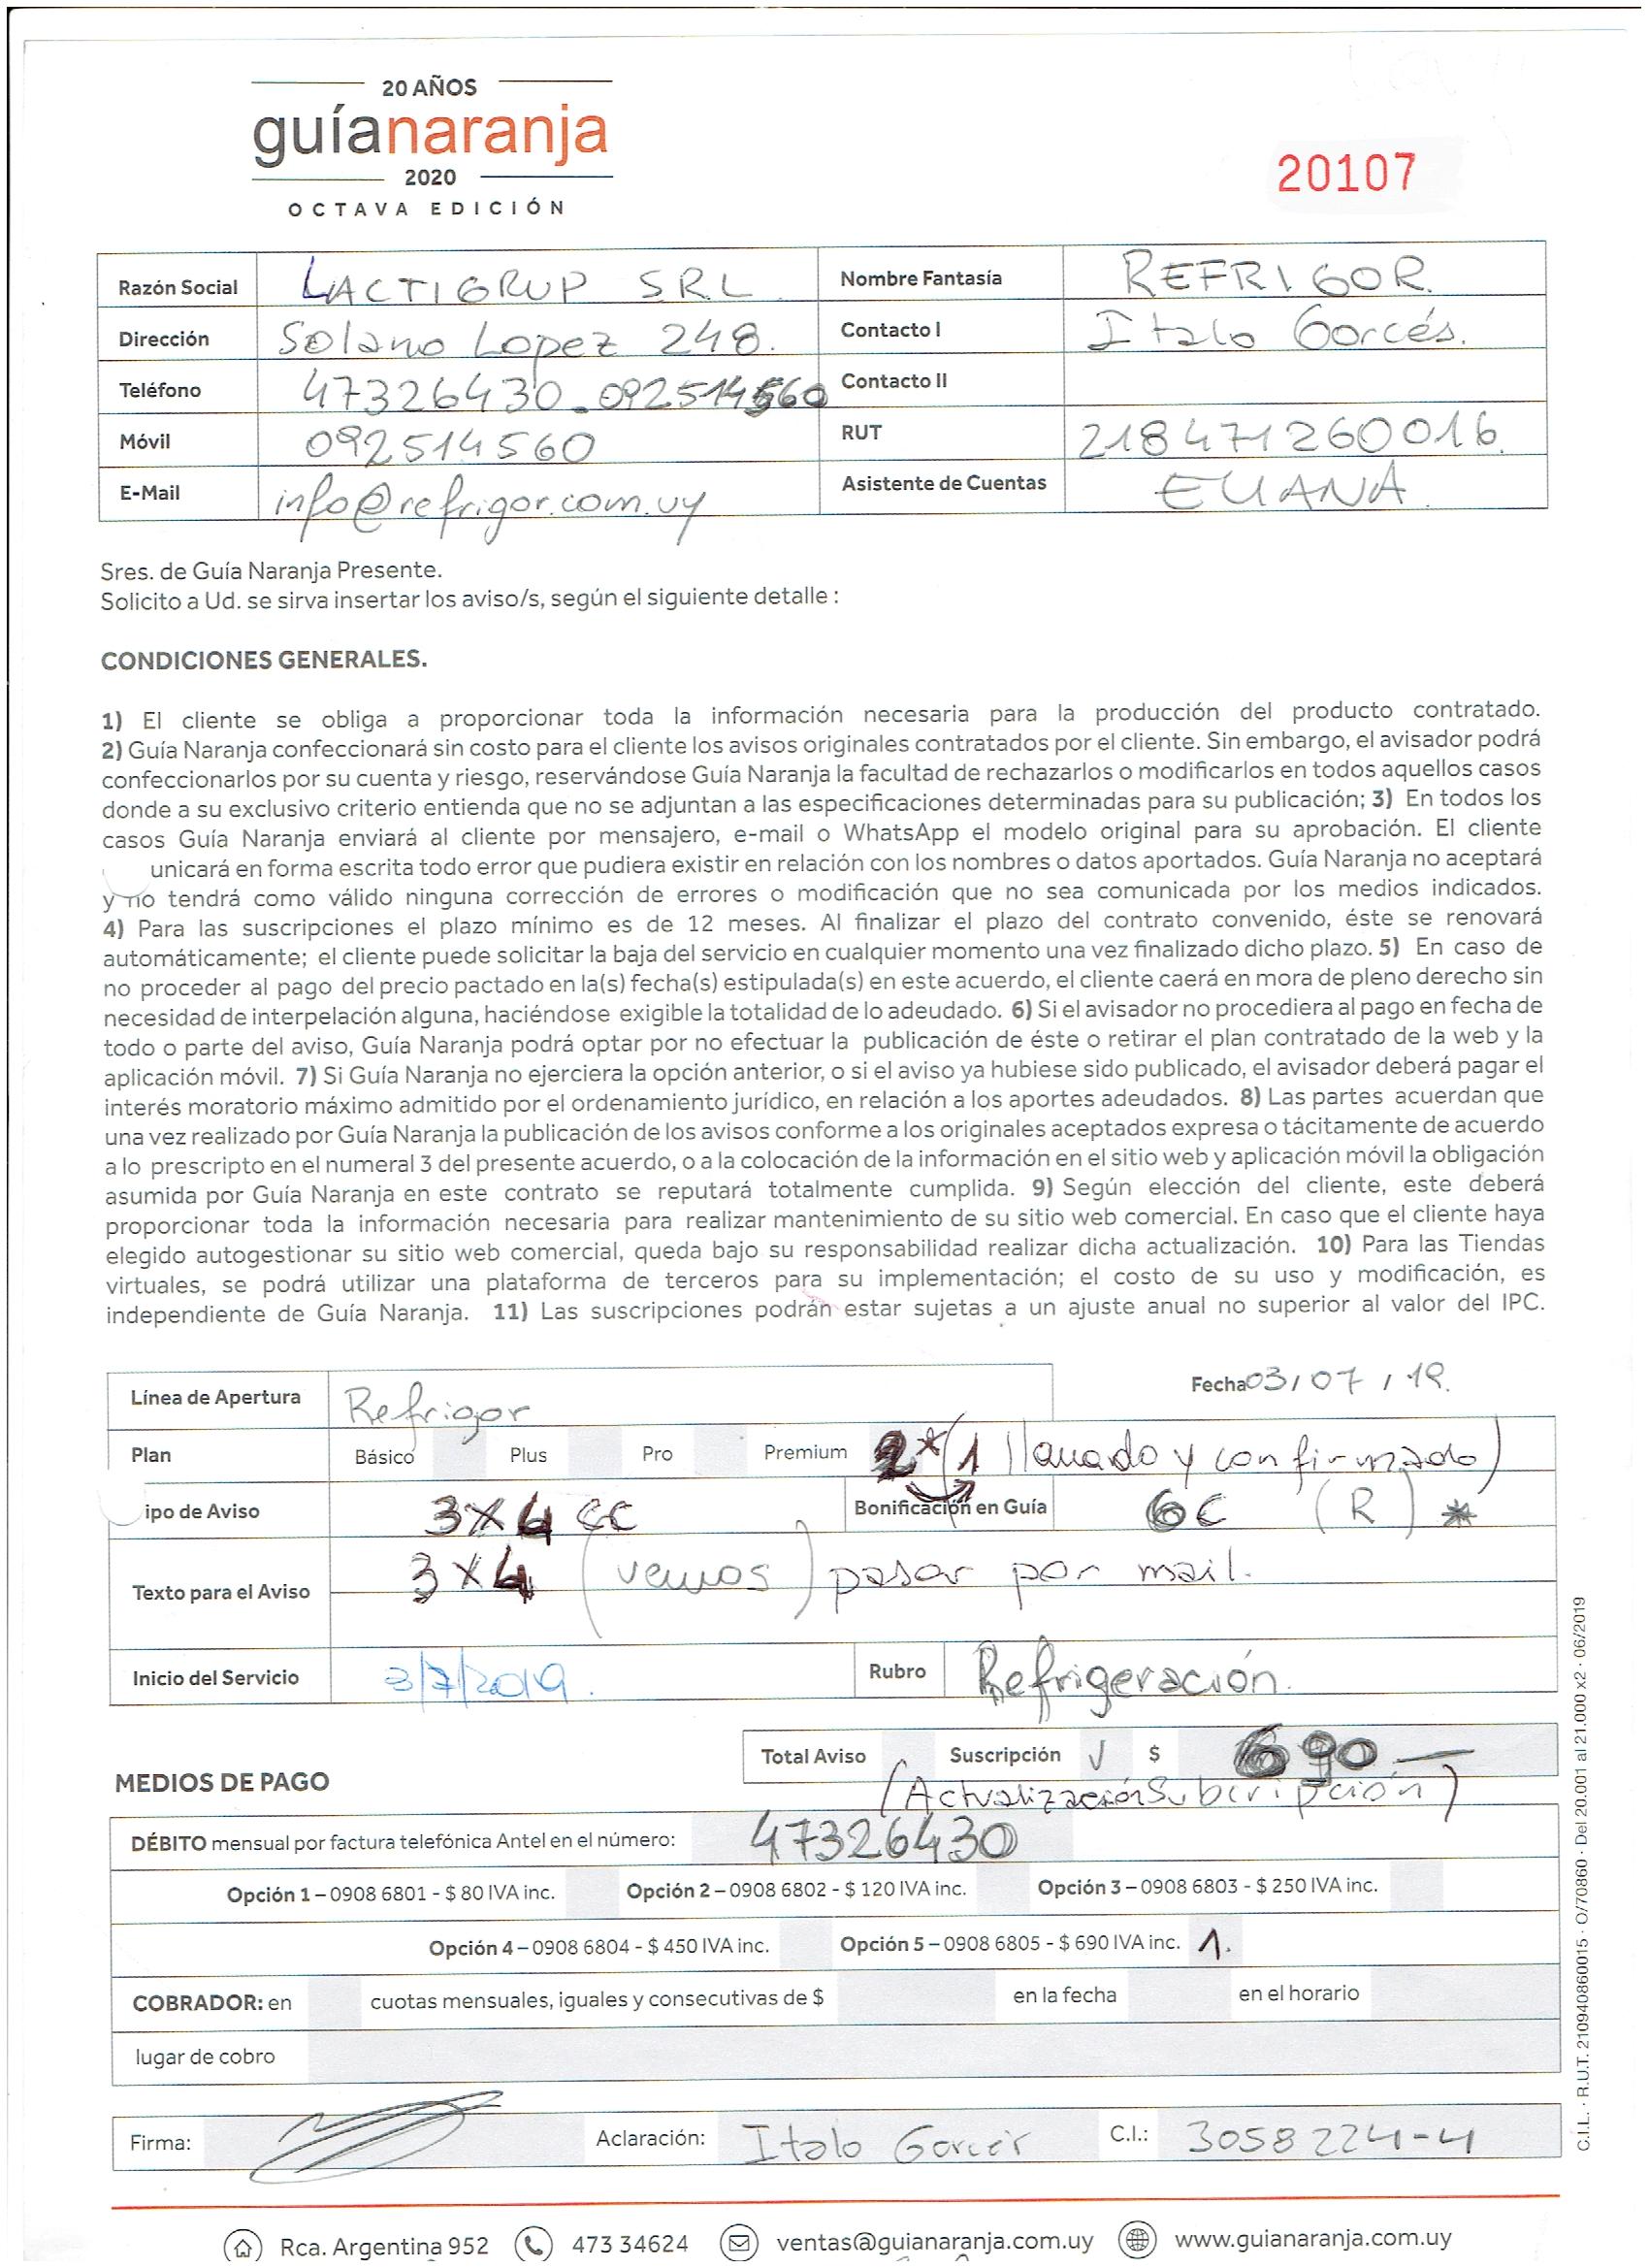 20 AÑOS
guíanaranja
2020
OCTAVA EDICIÓN
20107
Razón Social LACTIGRUP SRL Nombre Fantasía REFRIGOR.
Dirección Solano Lopez 248. Contacto I Italo Gorcés.
Teléfono 47326430 - 092514560 Contacto II
Móvil 092514560 RUT 218471260016.
E-Mail info@refrigor.com.uy Asistente de Cuentas
Sres. de Guía Naranja Presente.
Solicito a Ud. se sirva insertar los aviso/s, según el siguiente detalle :
CONDICIONES GENERALES.
1) El cliente se obliga a proporcionar toda la información necesaria para la producción del producto contratado.
2) Guía Naranja confeccionará sin costo para el cliente los avisos originales contratados por el cliente. Sin embargo, el avisador podrá
confeccionarlos por su cuenta y riesgo, reservándose Guía Naranja la facultad de rechazarlos o modificarlos en todos aquellos casos
donde a su exclusivo criterio entienda que no se adjuntan a las especificaciones determinadas para su publicación; 3) En todos los
casos Guía Naranja enviará al cliente por mensajero, e-mail o WhatsApp el modelo original para su aprobación. El cliente
unicará en forma escrita todo error que pudiera existir en relación con los nombres o datos aportados. Guía Naranja no aceptará
y no tendrá como válido ninguna corrección de errores o modificación que no sea comunicada por los medios indicados.
4) Para las suscripciones el plazo mínimo es de 12 meses. Al finalizar el plazo del contrato convenido, éste se renovará
automáticamente; el cliente puede solicitar la baja del servicio en cualquier momento una vez finalizado dicho plazo. 5) En caso de
no proceder al pago del precio pactado en la(s) fecha(s) estipulada(s) en este acuerdo, el cliente caerá en mora de pleno derecho sin
necesidad de interpelación alguna, haciéndose exigible la totalidad de lo adeudado. 6) Si el avisador no procediera al pago en fecha de
todo o parte del aviso, Guía Naranja podrá optar por no efectuar la publicación de éste o retirar el plan contratado de la web y la
aplicación móvil. 7) Si Guía Naranja no ejerciera la opción anterior, o si el aviso ya hubiese sido publicado, el avisador deberá pagar el
interés moratorio máximo admitido por el ordenamiento jurídico, en relación a los aportes adeudados. 8) Las partes acuerdan que
una vez realizado por Guía Naranja la publicación de los avisos conforme a los originales aceptados expresa o tácitamente de acuerdo
a lo prescripto en el numeral 3 del presente acuerdo, o a la colocación de la información en el sitio web y aplicación móvil la obligación
asumida por Guía Naranja en este contrato se reputará totalmente cumplida. 9) Según elección del cliente, este deberá
proporcionar toda la información necesaria para realizar mantenimiento de su sitio web comercial. En caso que el cliente haya
elegido autogestionar su sitio web comercial, queda bajo su responsabilidad realizar dicha actualización. 10) Para las Tiendas
virtuales, se podrá utilizar una plataforma de terceros para su implementación; el costo de su uso y modificación, es
independiente de Guía Naranja. 11) Las suscripciones podrán estar sujetas a un ajuste anual no superior al valor del IPC.
Línea de Apertura Refrigor Fecha 03/07/19.
Plan Básico Plus Pro Premium 2* (1 llamado y confirmado)
ipo de Aviso 3x4 Bonificación en Guía 6C (R) *
Texto para el Aviso 3x4 (vemos) pasar por mail.
Inicio del Servicio 3/7/2019. Rubro Refrigeración.
Total Aviso Suscripción √ $ 690 —
MEDIOS DE PAGO
(Actualización Subcripción)
DÉBITO mensual por factura telefónica Antel en el número: 47326430
Opción 1 – 0908 6801 - $ 80 IVA inc. Opción 2 – 0908 6802 - $ 120 IVA inc. Opción 3 – 0908 6803 - $ 250 IVA inc.
Opción 4 – 0908 6804 - $ 450 IVA inc. Opción 5 – 0908 6805 - $ 690 IVA inc. 1.
COBRADOR: en cuotas mensuales, iguales y consecutivas de $ en la fecha en el horario
lugar de cobro
Firma: Aclaración: Italo Gorcés C.I.: 3058224-4
Rca. Argentina 952 473 34624 ventas@guianaranja.com.uy www.guianaranja.com.uy
C.I.L. · R.U.T. 210940860015 · O/70860 · Del 20.001 al 21.000 x2 · 06/2019